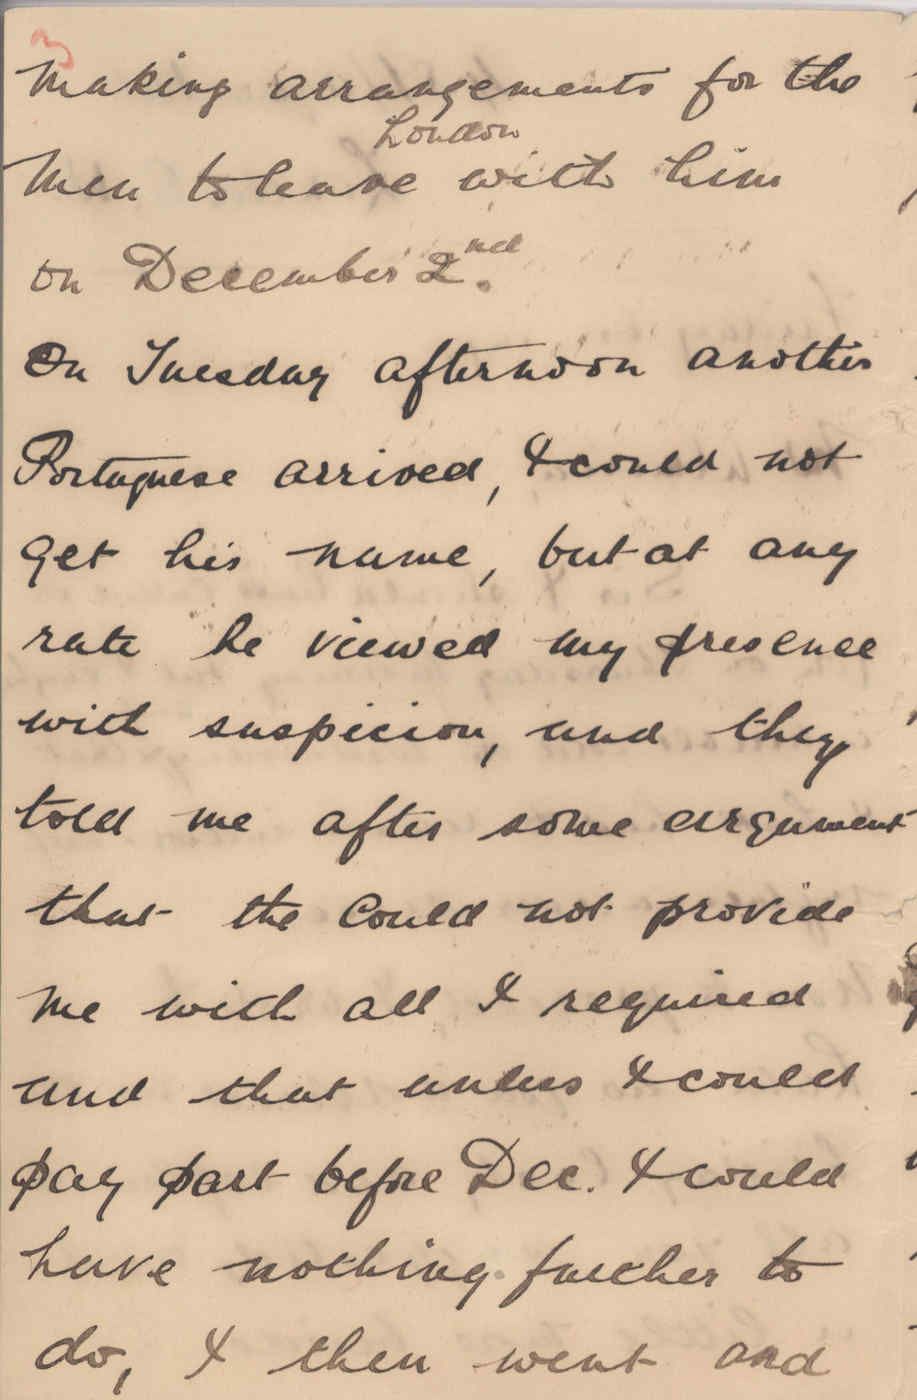 making arrangements for the
London
men to leave with him
on December 2nd.
On Tuesday afternoon another
Portuguese arrived, I could not
get his name, but at any
rate he viewed my presence
with suspicion, and they
told me after some argument
that the could not provide
me with all I required
and that unless I could
pay part before Dec. I could
have nothing further to
do, I then went and